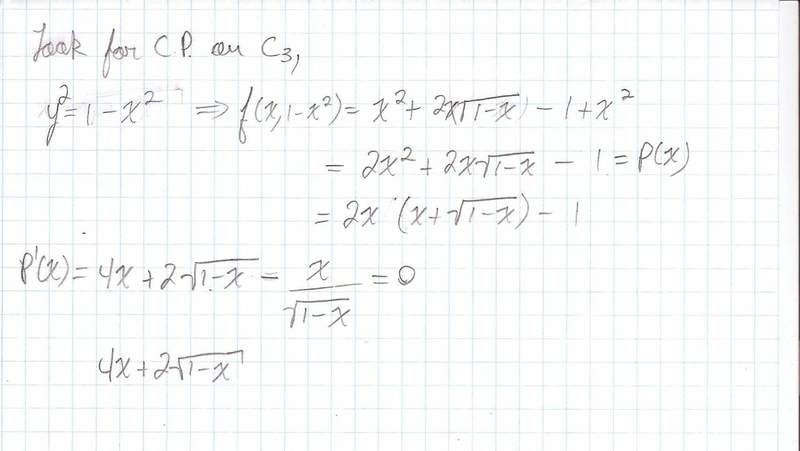 Look for C.P. on C₃,
y² = 1 - x² ⇒ f(x, 1-x²) = x² + 2x√(1-x) - 1 + x²
= 2x² + 2x√(1-x) - 1 = P(x)
= 2x (x + √(1-x)) - 1
P'(x) = 4x + 2√(1-x) - x/√(1-x) = 0
4x + 2√(1-x)